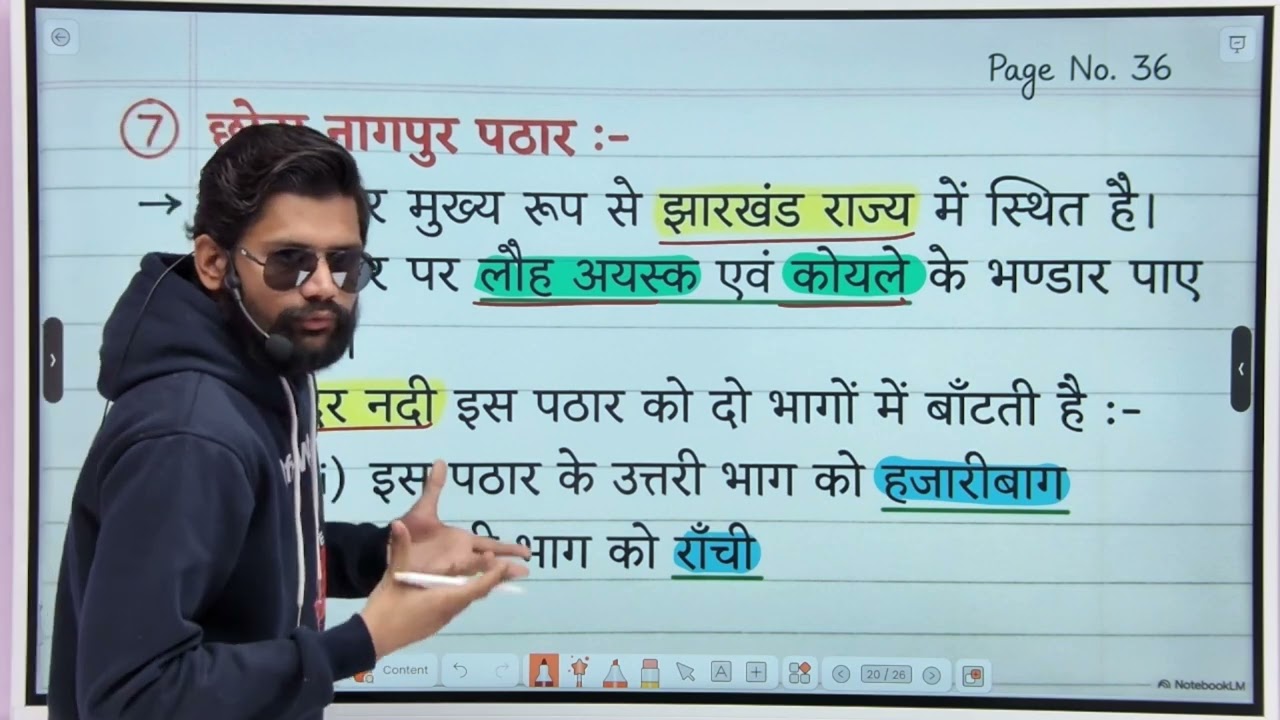 Page No. 36
7 नागपुर पठार :-
→ मुख्य रूप से झारखंड राज्य में स्थित है।
पर लौह अयस्क एवं कोयले के भण्डार पाए
नदी इस पठार को दो भागों में बाँटती है :-
i) इस पठार के उत्तरी भाग को हजारीबाग
भाग को राँची
Content
20 / 26
NotebookLM